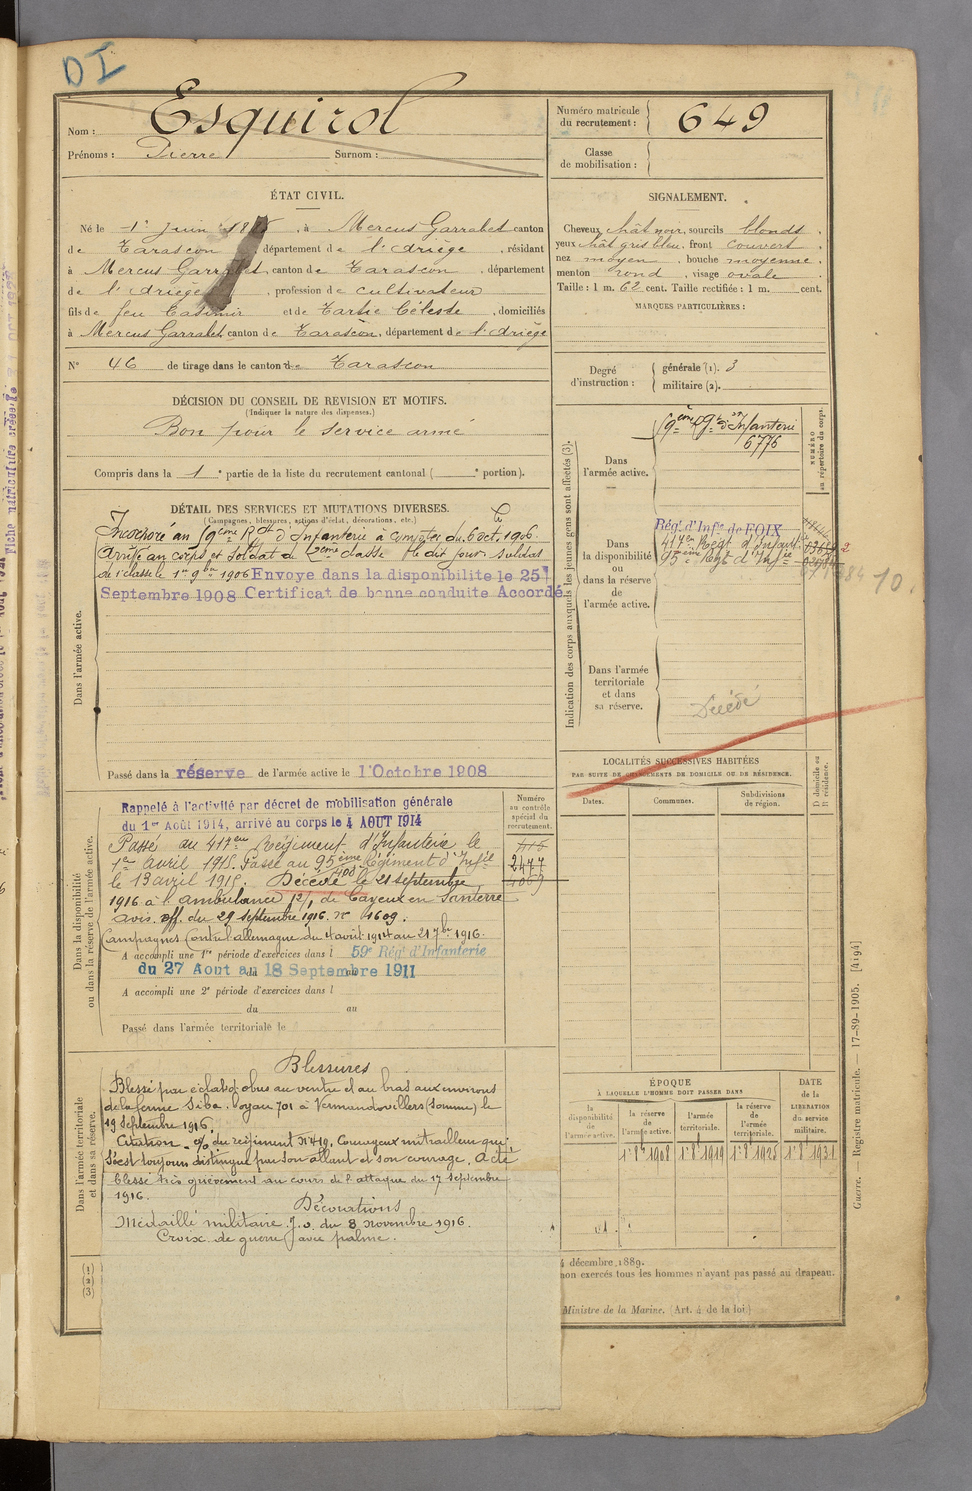 DI
Nom : Esquirol
Prénoms : Pierre Surnom :
Numéro matricule du recrutement : 649
Classe de mobilisation :
ÉTAT CIVIL.
Né le 1er juin , à Mercus Garrabet canton
de Tarascon , département de l'Ariège , résidant
à Mercus Garrabet, canton de Tarascon , département
de l'Ariège , profession de cultivateur
fils de feu Casimir et de Céleste , domiciliés
à Mercus Garrabet canton de Tarascon, département de l'Ariège
N° 46 de tirage dans le canton de Tarascon
DÉCISION DU CONSEIL DE REVISION ET MOTIFS.
(Indiquer la nature des dispenses.)
Bon pour le service armé
Compris dans la 1e partie de la liste du recrutement cantonal ( e portion).
DÉTAIL DES SERVICES ET MUTATIONS DIVERSES.
(Campagnes, blessures, actions d'éclat, décorations, etc.)
Incorporé au 59ème Rgt d'Infanterie à compter du 6 oct. 1906.
Arrivé au corps et soldat de 2eme classe le dit jour. Soldat
de 1e classe le 1er 9bre 1906 Envoye dans la disponibilite le 25
Septembre 1908 Certificat de bonne conduite Accordé.
Dans l'armée active.
Passé dans la réserve de l'armée active le 1 Octobre 1908
Rappelé à l'activité par décret de mobilisation générale
du 1er Août 1914, arrivé au corps le 4 AOUT 1914
Passé au 417eme Régiment d'Infanterie le
1er avril 1915. Passé au 95ème Régiment d'Infie
le 13 avril 1915. Décédé le 21 septembre
1916 à l'ambulance 12/1 de Cayeux en Santerre
avis off. du 29 septembre 1916. N° 1609.
Campagnes Contre l'allemagne du 4 août 1914 au 21 7bre 1916.
A accompli une 1re période d'exercices dans l 59e Régt d'Infanterie
du 27 Aout au 18 Septembre 1911
A accompli une 2e période d'exercices dans l
du au
Passé dans l'armée territoriale le
Dans la disponibilité
ou dans la réserve de l'armée active.
Numéro
au contrôle
spécial du
recrutement.
2477
Blessures
Blessé par éclats d'obus au ventre et au bras aux environs
de la ferme Siba. Boyau 701 à Vermandovillers (Somme) le
19 septembre 1916.
Citation - o/o du régiment N° 419. Courageux mitrailleur qui
s'est toujours distingué par son allant et son courage. a été
blessé très grièvement au cours de l'attaque du 17 septembre
1916.
Décorations
Médaille militaire J.O. du 8 novembre 1916.
Croix de guerre avec palme.
Dans l'armée territoriale
et dans sa réserve.
(1)
(2)
(3)
SIGNALEMENT.
Cheveux chât noir, sourcils blonds ,
yeux chât gris bleu, front couvert ,
nez moyen , bouche moyenne ,
menton rond , visage ovale .
Taille : 1 m. 62 cent. Taille rectifiée : 1 m. cent.
MARQUES PARTICULIÈRES :
Degré d'instruction : générale (1). 3
militaire (2).
Indication des corps auxquels les jeunes gens sont affectés (3).
NUMÉRO
au répertoire du corps.
Dans
l'armée active.
59ème Rgt d'Infanterie
6776
Dans
la disponibilité
ou
dans la réserve
de
l'armée active.
Régt d'Infie de FOIX
417em Régt d'Infant.
95ème Regt d'Infie
10.
Dans l'armée
territoriale
et dans
sa réserve.
Décédé
LOCALITÉS SUCCESSIVES HABITÉES
PAR SUITE DE CHANGEMENTS DE DOMICILE OU DE RÉSIDENCE.
Dates.
Communes.
Subdivisions
de région.
D domicile ou
R résidence.
ÉPOQUE
À LAQUELLE L'HOMME DOIT PASSER DANS
DATE
de la
LIBÉRATION
du service
militaire.
la
disponibilité
de
l'armée active.
la réserve
de
l'armée active.
l'armée
territoriale.
la réserve
de
l'armée
territoriale.
1er 8bre 1908
1er 8 1919
1er 8 1925
1er 8 1931
4 décembre 1889.
non exercés tous les hommes n'ayant pas passé au drapeau.
Ministre de la Marine. (Art. 4 de la loi.)
Guerre. — Registre matricule. — 17-89-1905. [4194]